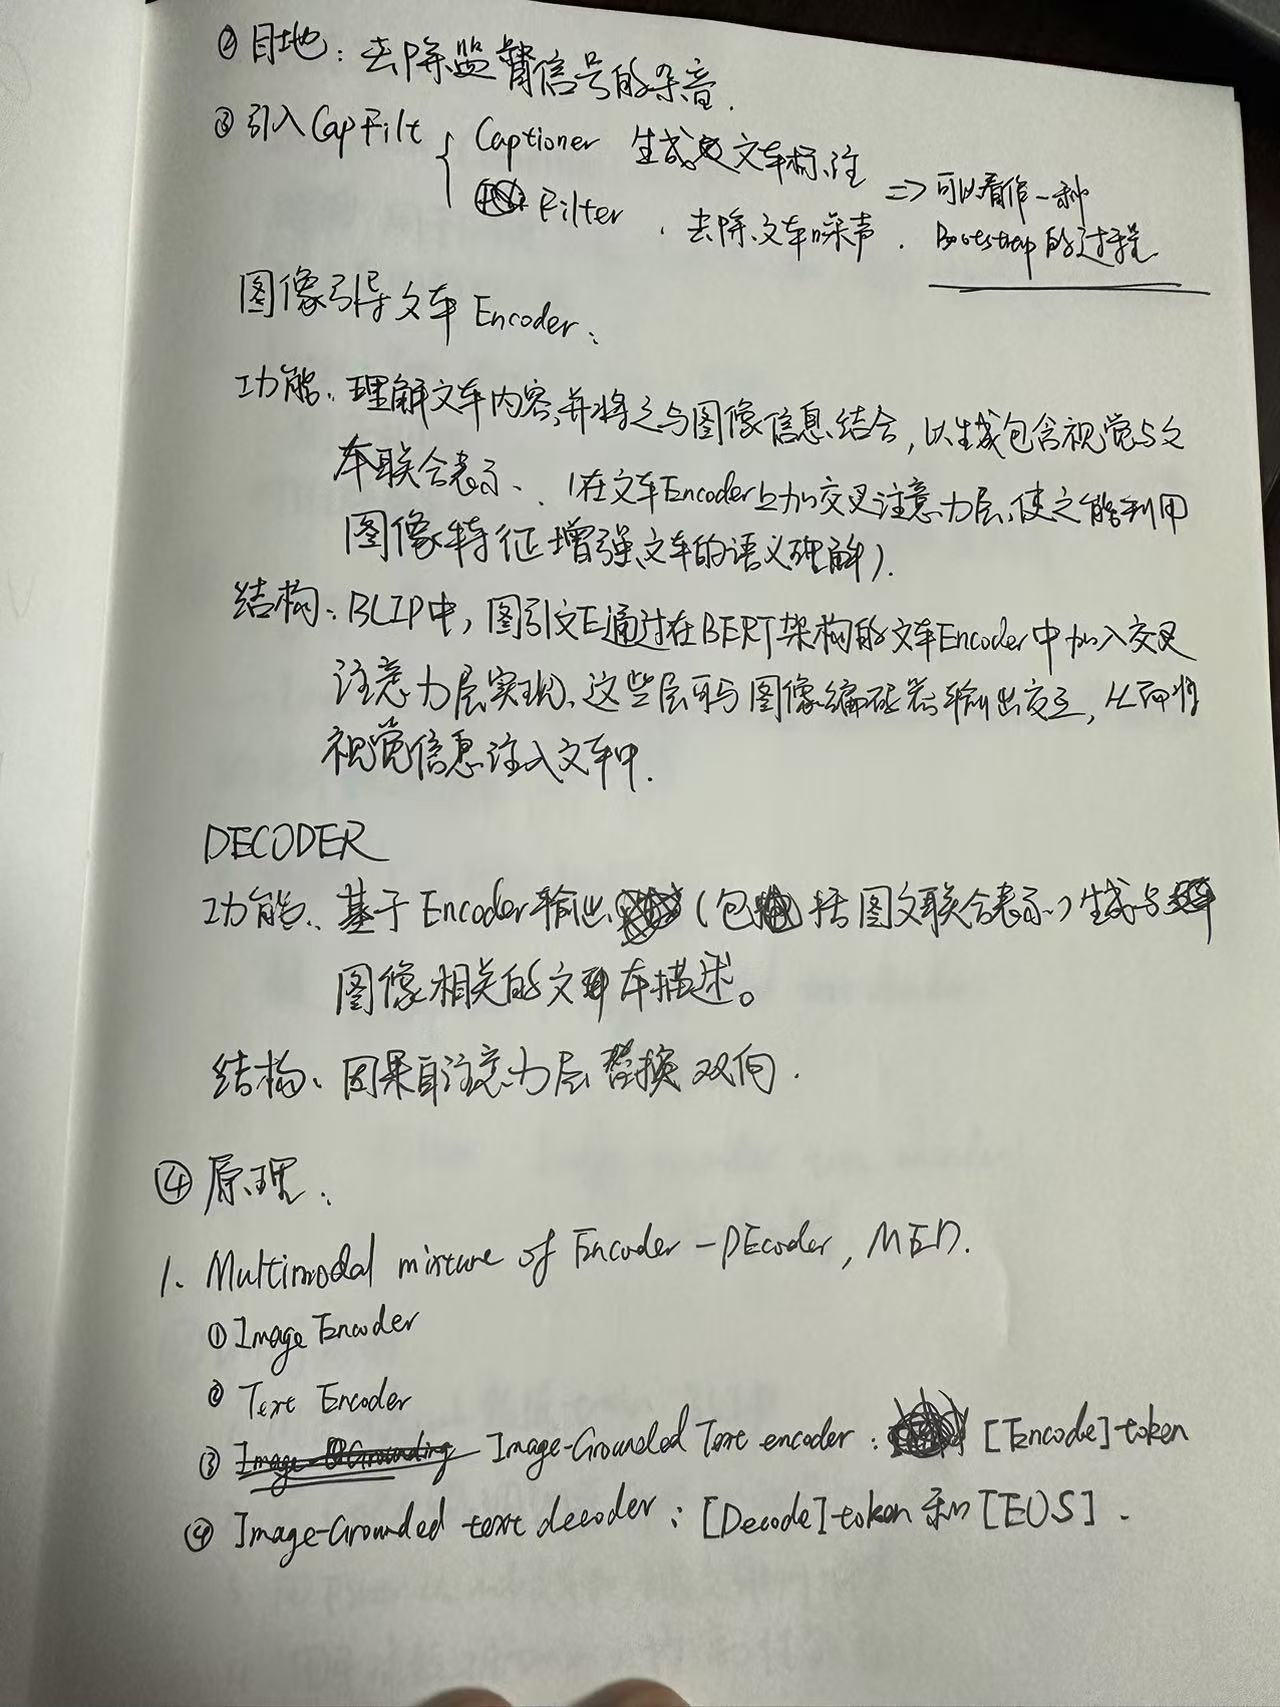 ② 目地：去除监督信号的杂音.
③ 引入CapFilt { Captioner 生成文本标注
Filter. 去除文本噪声. => 可以看作一种
Bootstrap的过程.
图像引导文本 Encoder:
功能: 理解文本内容,并将之与图像信息结合, 以生成包含视觉与文
本联合表示. (在文本Encoder上加交叉注意力层,使之能利用
图像特征增强文本的语义理解).
结构: BLIP中, 图引文E通过在BERT架构的文本Encoder中加入交叉
注意力层实现, 这些层可与图像编码器输出交互, 从而将
视觉信息注入文本中.
DECODER
功能: 基于Encoder输出 (包括图文联合表示) 生成与
图像相关的文本描述。
结构: 因果自注意力层替换双向.
④ 原理:
1. Multimodal mixture of Encoder-DEcoder, MED.
① Image Encoder
② Text Encoder
③ Image-Grounded Text encoder: [Encode]-token
④ Image-Grounded text decoder: [Decode]-token 和 [EOS].